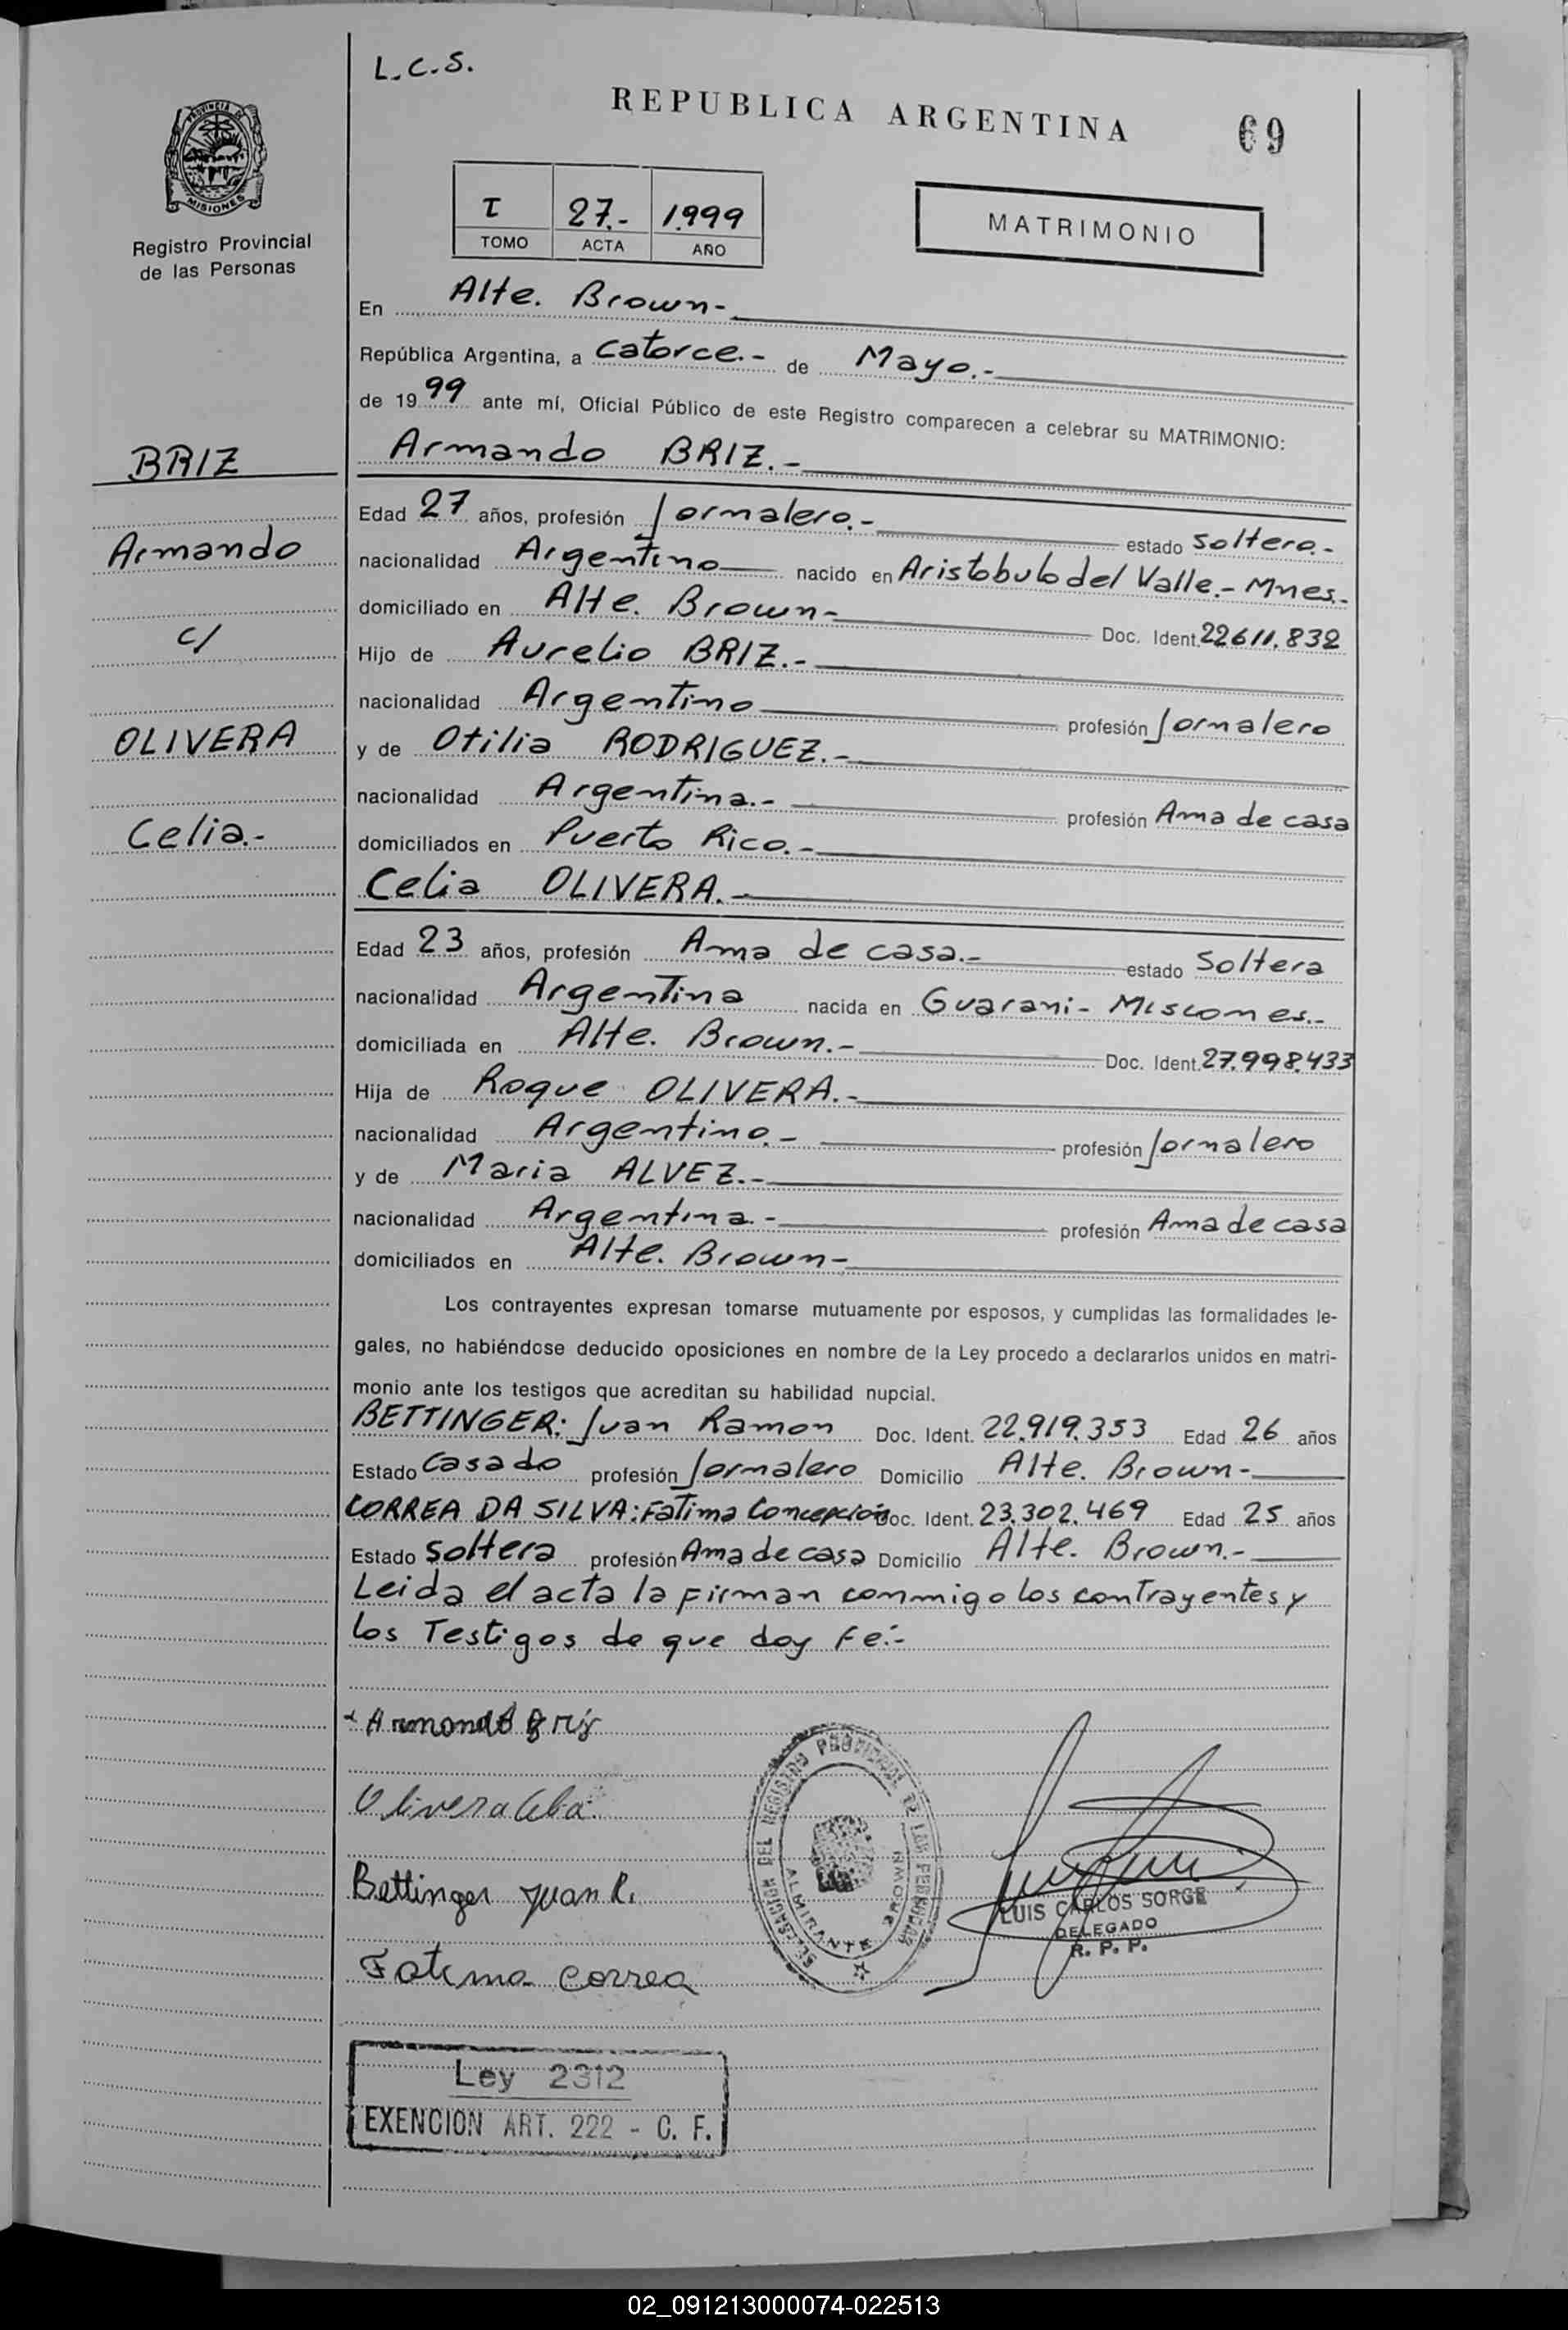 L.C.S.
REPUBLICA ARGENTINA
69
PROVINCIA DE
MISIONES
Registro Provincial
de las Personas
I 27.- 1999
TOMO ACTA AÑO
MATRIMONIO
En Alte. Brown-
República Argentina, a Catorce.- de Mayo.-
de 1999 ante mí, Oficial Público de este Registro comparecen a celebrar su MATRIMONIO:
BRIZ
Armando
c/
OLIVERA
Celia.-
Armando BRIZ.-
Edad 27 años, profesión Jornalero.- estado soltero.-
nacionalidad Argentino nacido en Aristobulo del Valle.- Mnes.-
domiciliado en Alte. Brown- Doc. Ident. 22611.832
Hijo de Aurelio BRIZ.-
nacionalidad Argentino profesión Jornalero
y de Otilia RODRIGUEZ.-
nacionalidad Argentina.- profesión Ama de casa
domiciliados en Puerto Rico.-
Celia OLIVERA.-
Edad 23 años, profesión Ama de casa.- estado Soltera
nacionalidad Argentina nacida en Guarani- Misiones.-
domiciliada en Alte. Brown.- Doc. Ident. 27.998.433
Hija de Roque OLIVERA.-
nacionalidad Argentino.- profesión Jornalero
y de Maria ALVEZ.-
nacionalidad Argentina.- profesión Ama de casa
domiciliados en Alte. Brown-
Los contrayentes expresan tomarse mutuamente por esposos, y cumplidas las formalidades le-
gales, no habiéndose deducido oposiciones en nombre de la Ley procedo a declararlos unidos en matri-
monio ante los testigos que acreditan su habilidad nupcial.
BETTINGER: Juan Ramon Doc. Ident. 22.919.353 Edad 26 años
Estado Casado profesión Jornalero Domicilio Alte. Brown-
CORREA DA SILVA: Fatima Concepción Doc. Ident. 23.302.469 Edad 25 años
Estado Soltera profesión Ama de casa Domicilio Alte. Brown.-
Leida el acta la firman conmigo los contrayentes y
los Testigos de que doy Fe:-
Armando Briz
Olivera Celia.
Bettinger Juan R.
Fatima Correa
DELEGACION DEL REGISTRO PROVINCIAL DE LAS PERSONAS
ALMIRANTE BROWN
LUIS CARLOS SORGE
DELEGADO
R. P. P.
Ley 2312
EXENCION ART. 222 - C. F.
02_091213000074-022513